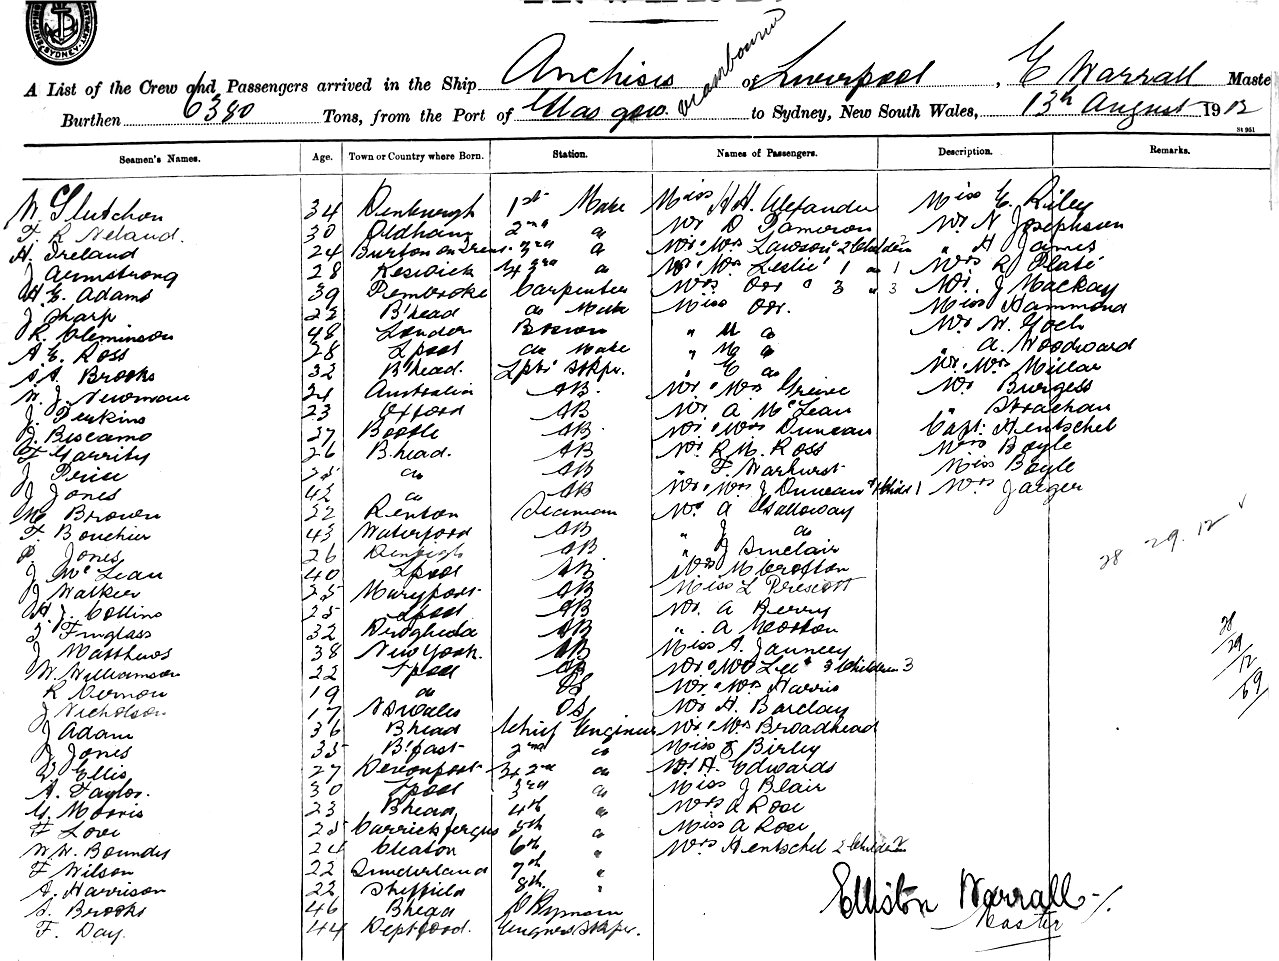 A List of the Crew and Passengers arrived in the Ship Anchises of Liverpool, E Warrall Maste
Burthen 6380 Tons, from the Port of Glasgow to Sydney, New South Wales, 13th August 1912
St 951
Seamen's Names. Age. Town or Country where Born. Station. Names of Passengers. Description. Remarks.
34 Denburgh 1st Mate Miss H H. Alexander Miss E. Riley
30 Oldham 2nd Mr D Mr N Josephson
H. Ireland 24 Burton on Trent 3rd Mr & Mrs Lawson 2 Children 2 " H James
J Armstrong 28 Keswick Mr Mrs Leslie 1 " 1 Mrs R Plate
H. E. Adams 39 Pembroke Carpenter Mrs Orr " 3 " 3 Mr. J Mackay
J Sharp 22 B'head do Mate Miss Orr. Miss Hammond
R. Cleminson 48 London Bosun " M do Mr W. Goch
A. E. Ross 28 Lpool do Mate " M do " A. Woodward
S. A. Brooks 32 B'head. " E do Mr. Mrs Millar
W. J. Newman 24 Australia AB. Mr. & Mrs Greive Mr Burgess
J. Perkins 23 Oxford AB Mr. A McLean " Strachan
J. Biscamo 27 Bootle AB Mr & Mrs Duncan Capt. Hentschel
F Garrity 26 B.head. AB Mr. R. M. Ross Mrs Boyle
J Price 25 do AB " F. Warhurst Miss Boyle
J Jones 42 do AB Mr. & Mrs J Duncan 1 Child 1 Mrs Jaeger
M Brown 22 Renton Seaman Mr A Galloway
F. Bouchier 43 Waterford AB " J do
Jones 26 Denbigh AB " J Sinclair
J McLean 40 Lpool AB Mrs M Crofton
J Walker 25 Maryport AB Miss L Prescott
H. J. Collins 25 Lpool AB Mr. A Berry
Finglass 32 Drogheda AB " A
J Matthews 38 New York. AB Miss A. Jauncey
W. Williamson 22 Lpool Mr & Mrs Lee 3 Children 3
R Vernon 19 do OS Mr. & Mrs Harris
J Nicholson 17 N S Wales OS Mr H. Barclay
J Adam 36 B'head Chief Engineer Mr. & Mrs Broadhead
J Jones 35 B'fast 2nd do Miss Birley
Ellis 27 Devonport do Mr H. Edwards
A. Taylor. 30 Lpool 3rd do Miss J Blair
G. Morris 23 B'head 4th do Mrs A Rose
F Love 25 Carrickfergus 5th do Miss A Rose
W. W. Boundy 24 Cleator 6th " Mrs Hentschel 2 Children 2
F Wilson 22 Sunderland 7th "
A. Harrison 22 Sheffield 8th "
S. Brooks 46 B'head
F. Day 44 Deptford. Engineers Stkpr.
28 29. 12 ✓
28
29
12
69
Elliston Warrall
Master